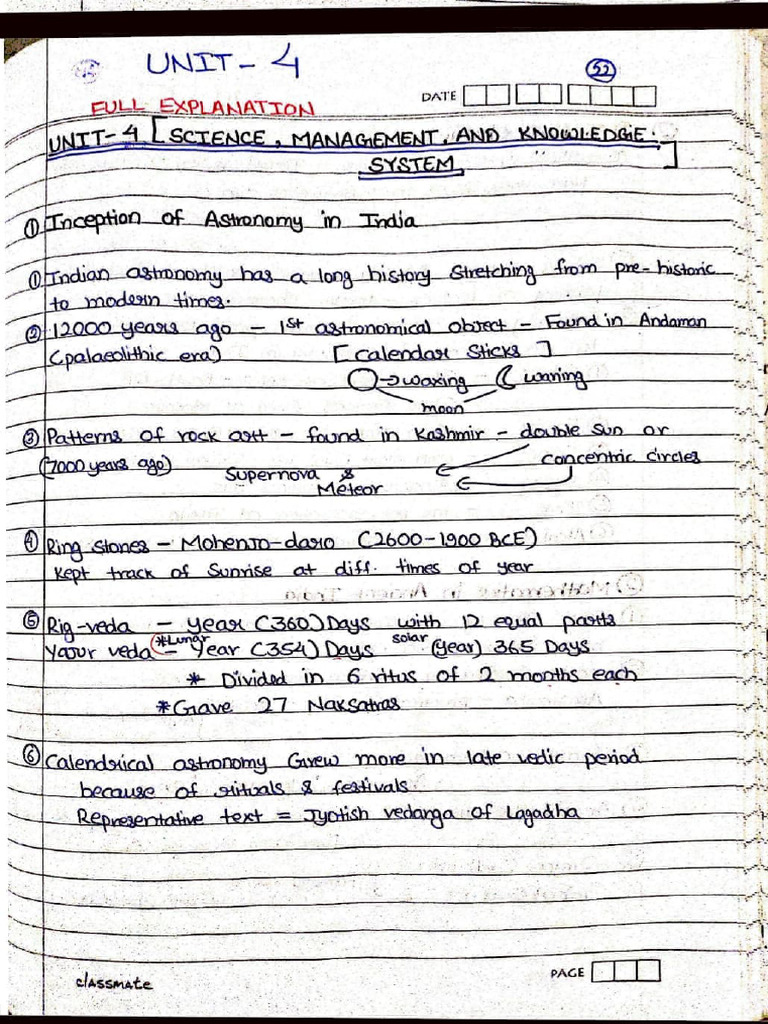 UNIT-4
52
DATE
FULL EXPLANATION
UNIT-4 [SCIENCE, MANAGEMENT, AND KNOWLEDGE
SYSTEM]
① Inception of Astronomy in India
① Indian astronomy has a long history stretching from pre-historic
to modern times.
② 12000 years ago - 1st astronomical object - Found in Andaman
(palaeolithic era) [Calendar Sticks]
→ waxing waning
moon
③ Patterns of rock art - found in Kashmir - double sun or
(7000 years ago) concentric circles
Supernova &
Meteor
④ Ring stones - Mohenjo-daro (2600-1900 BCE)
Kept track of Sunrise at diff. times of year
⑤ Rig-veda - year (360) Days with 12 equal parts
Yajur veda - *Lunar year (354) Days solar (year) 365 Days
* Divided in 6 ritus of 2 months each
* Gave 27 Naksatras
⑥ Calendrical astronomy Grew more in late vedic period
because of rituals & festivals.
Representative text = Jyotish vedanga of Lagadha
classmate
PAGE